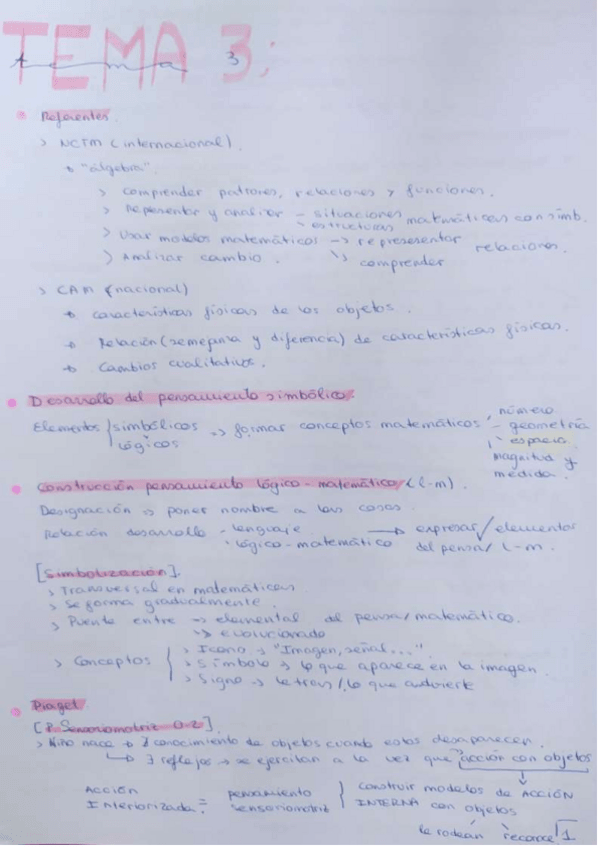 TEMA 3:
tema 3
Referentes.
> NCTM (internacional).
"álgebra".
> Comprender patrones, relaciones y funciones.
> Representar y analizar - situaciones matemáticas con simb.
- estructuras
> Usar modelos matemáticos -> representar relaciones.
> Analizar cambio. -> comprender
> CAM (nacional)
Características físicas de los objetos.
Relación (semejanza y diferencia) de características físicas.
Cambios cualitativos.
Desarrollo del pensamiento simbólico.
Elementos / simbólicos => formar conceptos matemáticos - número
\ lógicos - geometría
- espacio
magnitud y
medida.
Construcción pensamiento lógico-matemático (l-m).
Designación => poner nombre a las cosas.
Relación desarrollo - lenguaje -> expresar/elementos
- lógico-matemático del pensa/ l-m.
[Simbolización].
> Transversal en matemáticas
> Se forma gradualmente.
> Puente entre -> elemental del pensa/matemático.
-> evolucionado
> Conceptos { > Icono -> "Imagen, señal..."
> Símbolo -> lo que aparece en la imagen.
> Signo -> letras/lo que advierte
Piaget.
[P. Sensoriomotriz 0-2].
> Niño nace -> conocimiento de objetos cuando estos desaparecen.
-> reflejos -> se ejercitan a la vez que "acción con objetos
Acción Interiorizada = pensamiento sensoriomotriz } construir modelos de ACCIÓN
INTERNA con objetos
le rodean reconoce 1